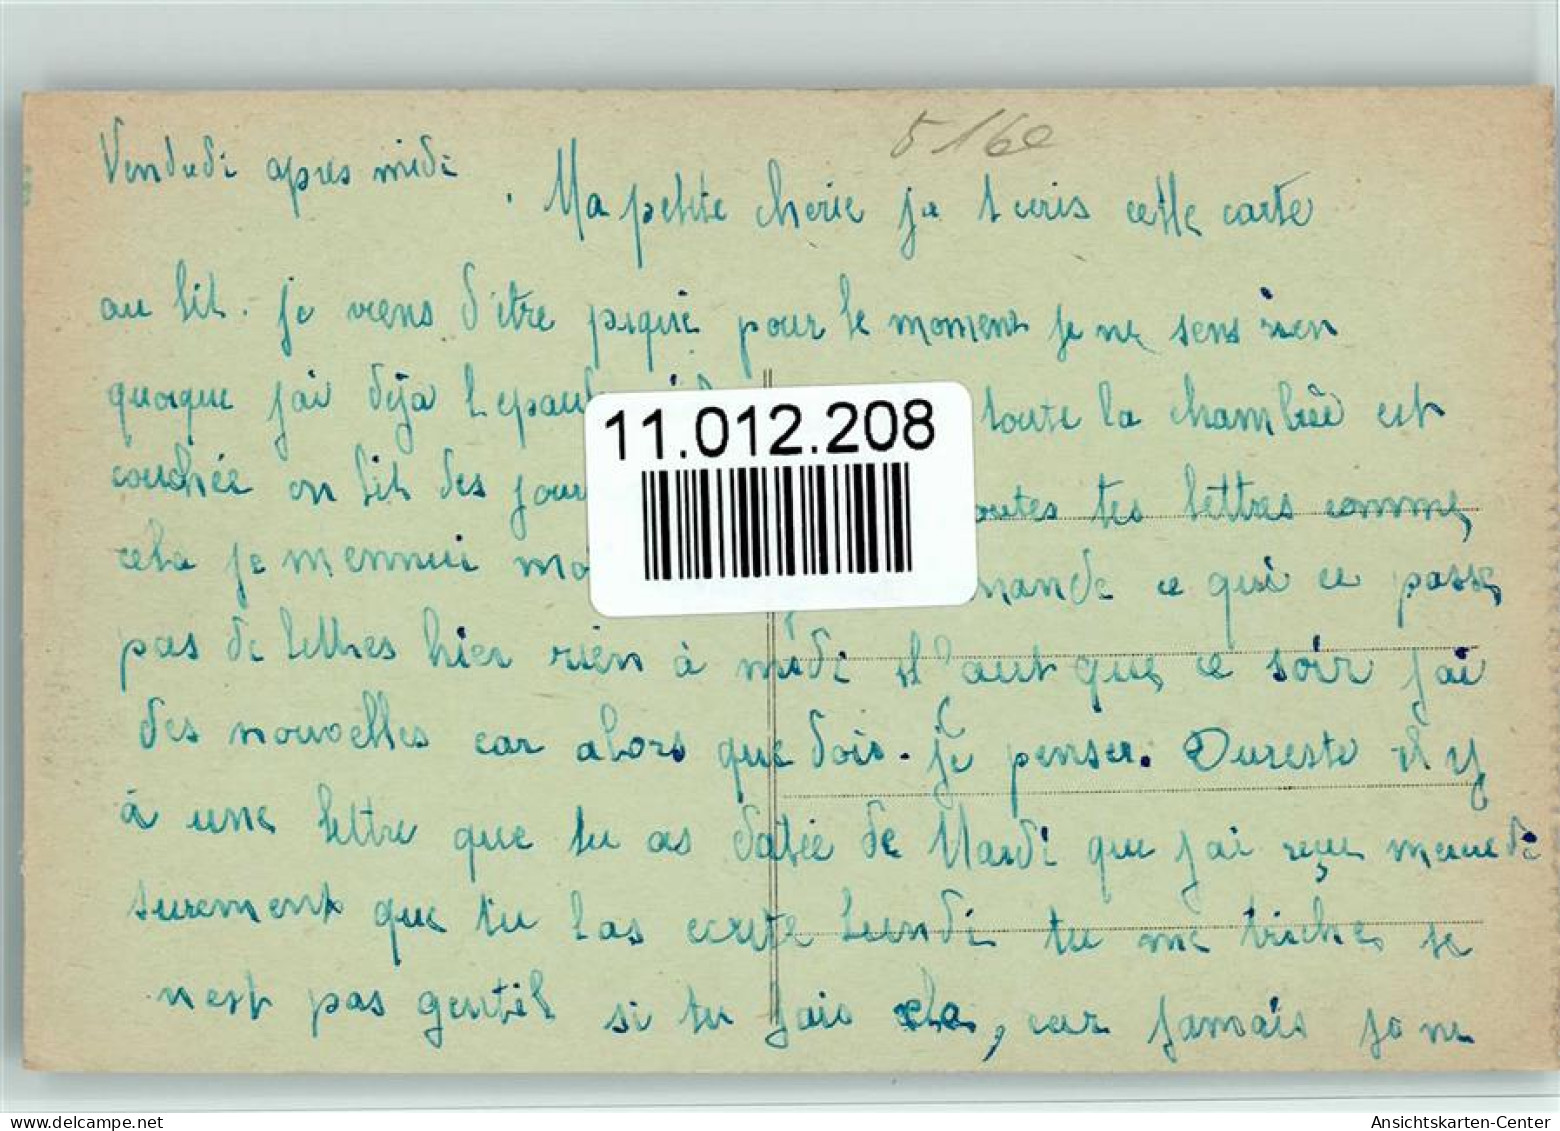 5160
Vendredi apres midi . Ma petite cherie je t ecris cette carte
au lit. je viens d'être piqué pour le moment je ne sens rien
quoique j'ai déja l epau toute la chambrée est
couchée on lit des jour outes tes lettres comme
cela je m ennui mo mande ce qui ce passe
pas de lettres hier rien à midi il faut que ce soir j'ai
des nouvelles car alors que dois-je penser. Dureste il y
à une lettre que tu as datée de Mardi que j'ai reçu
surement que tu l as ecrite Lundi tu me triches se
n'est pas gentil si tu fais cela, car jamais je ne
11.012.208
www.delcampe.net
Ansichtskarten-Center